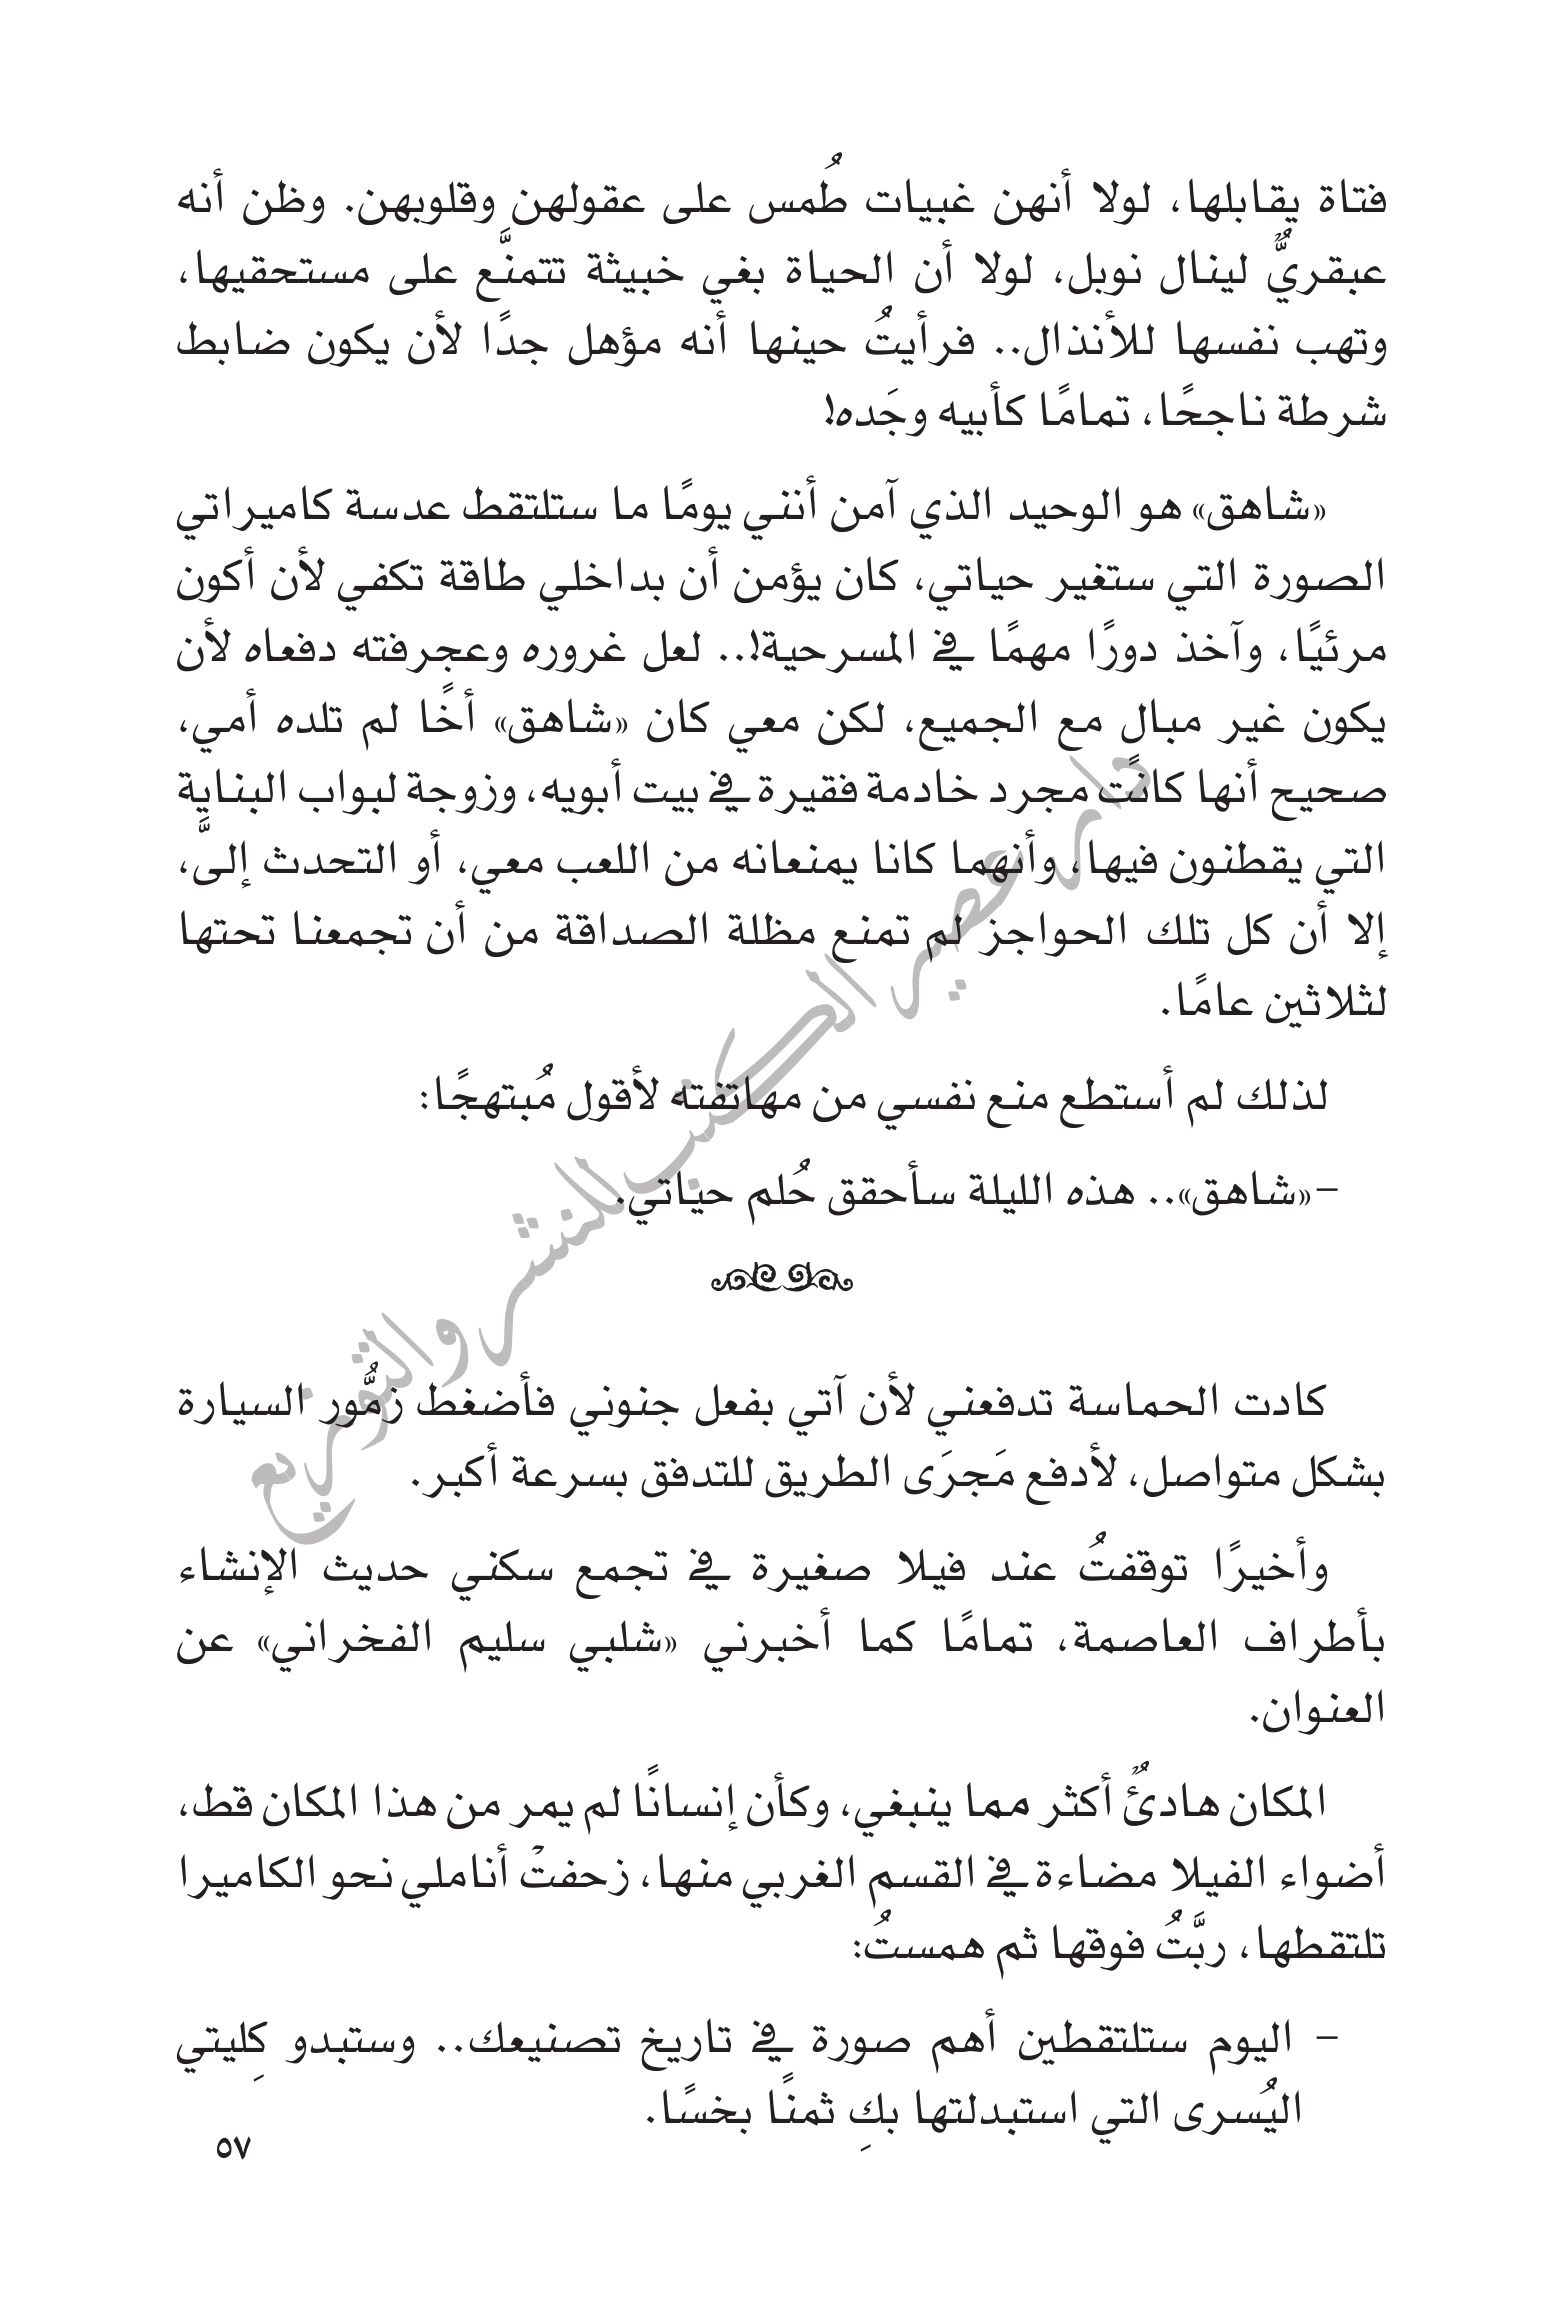 فتاة يقابلها، لولا أنهن غبيات طُمس على عقولهن وقلوبهن. وظن أنه
عبقريٌّ لينال نوبل، لولا أن الحياة بغي خبيثة تتمنَّع على مستحقيها،
وتهب نفسها للأنذال.. فرأيتُ حينها أنه مؤهل جدًا لأن يكون ضابط
شرطة ناجحًا، تمامًا كأبيه وجَده!
«شاهق» هو الوحيد الذي آمن أنني يومًا ما ستلتقط عدسة كاميراتي
الصورة التي ستغير حياتي، كان يؤمن أن بداخلي طاقة تكفي لأن أكون
مرئيًا، وآخذ دورًا مهمًا في المسرحية!.. لعل غروره وعجرفته دفعاه لأن
يكون غير مبال مع الجميع، لكن معي كان «شاهق» أخًا لم تلده أمي،
صحيح أنها كانت مجرد خادمة فقيرة في بيت أبويه، وزوجة لبواب البناية
التي يقطنون فيها، وأنهما كانا يمنعانه من اللعب معي، أو التحدث إلىَّ،
إلا أن كل تلك الحواجز لم تمنع مظلة الصداقة من أن تجمعنا تحتها
لثلاثين عامًا.
لذلك لم أستطع منع نفسي من مهاتفته لأقول مُبتهجًا:
– «شاهق».. هذه الليلة سأحقق حُلم حياتي.
كادت الحماسة تدفعني لأن آتي بفعل جنوني فأضغط زمُّور السيارة
بشكل متواصل، لأدفع مَجرَى الطريق للتدفق بسرعة أكبر.
وأخيرًا توقفتُ عند فيلا صغيرة في تجمع سكني حديث الإنشاء
بأطراف العاصمة، تمامًا كما أخبرني «شلبي سليم الفخراني» عن
العنوان.
المكان هادئٌ أكثر مما ينبغي، وكأن إنسانًا لم يمر من هذا المكان قط،
أضواء الفيلا مضاءة في القسم الغربي منها، زحفتْ أناملي نحو الكاميرا
تلتقطها، ربَّتُ فوقها ثم همستُ:
– اليوم ستلتقطين أهم صورة في تاريخ تصنيعك.. وستبدو كِليتي
اليُسرى التي استبدلتها بكِ ثمنًا بخسًا.
٥٧
دار عصير الكتب للنشر والتوزيع